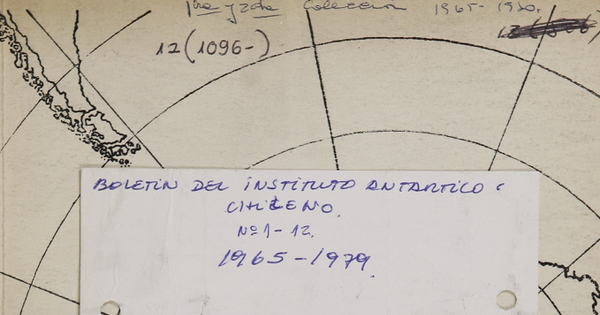 1ra y 2da Colección 1965-1980.
12(1096-)
BOLETIN DEL INSTITUTO ANTARTICO
CHILENO.
Nº 1-12.
1965-1979.